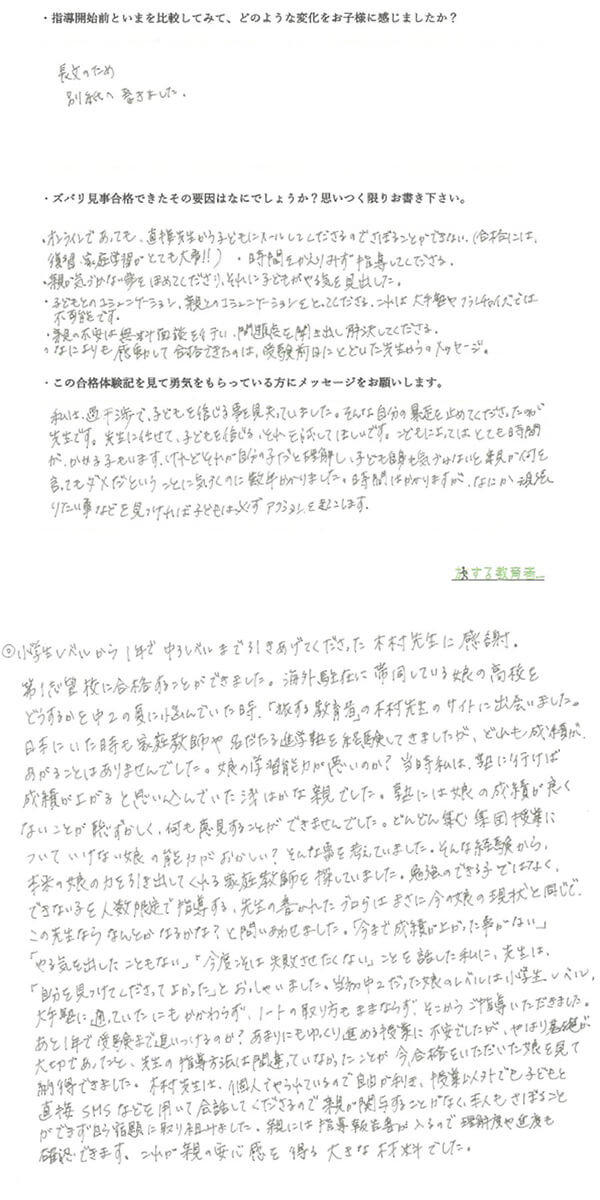 ・指導開始前といまを比較してみて、どのような変化をお子様に感じましたか？
長文のため
別紙へ書きました。
・ズバリ見事合格できたその要因はなにでしょうか？思いつく限りお書き下さい。
・オンラインであっても、直接先生から子どもにメールしてくださるのでさぼることができない。（合格には、
復習、家庭学習がとても大事!!）　・時間をかえりみず指導してくださる。
・親が気づかない事をほめてくださり、それに子どもがやる気を見出した。
・子どもとのコミュニケーション、親とのコミュニケーションをとってくださる。これは大手塾やフランチャイズでは
不可能です。
・親の不安は無料面談を行い、問題点を聞き出し解決してくださる。
○なによりも感動して合格できたのは、受験前日にとどいた先生からのメッセージ。
・この合格体験記を見て勇気をもらっている方にメッセージをお願いします。
私は、過干渉で、子どもを信じる事を見失っていました。そんな自分の暴走を止めてくださったのが
先生です。先生に任せて、子どもを信じる、それを試してほしいです。こどもによってはとても時間
が、かかる子もいます、けれどそれが自分の子だと理解し、子ども自身も気づかないと親が何を
言ってもダメだということに気づくのに数年かかりました。時間はかかりますが、なにか頑張
りたい事などを見つければ子どもは必ずアクションを起こします。
旅する教育者
◎小学生レベルから1年で中3レベルまで引きあげてくださった木村先生に感謝。
第1志望校に合格することができました。海外駐在に帯同している娘の高校を
どうするかを中2の夏に悩んでいた時、「旅する教育者」の木村先生のサイトに出会いました。
日本にいた時も家庭教師や名だたる進学塾を経験してきましたが、どれも成績が
あがることはありませんでした。娘の学習能力が悪いのか？当時私は、塾に行けば
成績が上がると思い込んでいた浅はかな親でした。塾には娘の成績が良く
ないことが恥ずかしく、何も意見することができませんでした。どんどん進む集団授業に
ついていけない娘の能力がおかしい？そんな事を考えていました。そんな経験から、
本来の娘の力を引き出してくれる家庭教師を探していました。勉強のできる子ではなく、
できない子を人数限定で指導する、先生の書かれたブログはまさに今の娘の現状と同じで、
この先生ならなんとかなるかな？と問いあわせました。「今まで成績が上がった事がない」
「やる気を出したこともない」「今度こそは失敗させたくない」ことを話した私に、先生は、
「自分を見つけてくださってよかった」とおっしゃいました。当初中2だった娘のレベルは小学生レベル、
大手塾に通っていたにもかかわらず、ノートの取り方もままならず、そこからご指導いただきました。
あと1年で受験まで追いつけるのか？あまりにもゆっくり進める授業に不安でしたが、やはり基礎が
大切であったと、先生の指導方法は間違っていなかったことが今、合格をいただいた娘を見て
納得できました。木村先生は、個人でやられているので自由が利き、授業以外でも子どもと
直接SMSなどを用いて会話してくださるので親が関与することがなく、本人もさぼること
ができず自ら宿題に取り組みました。親には指導報告書が入るので理解度や進度も
確認できます。これが親の安心感を得る大きな材料でした。